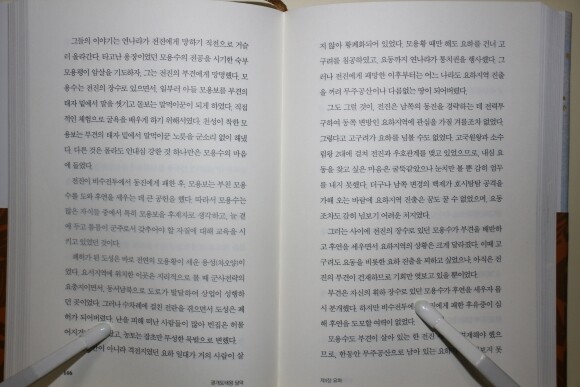 그들의 이야기는 연나라가 전진에게 망하기 직전으로 거슬
러 올라간다. 타고난 용장이었던 모용수의 전공을 시기한 숙부
모용평이 암살을 기도하자, 그는 전진의 부견에게 망명했다. 모
용수는 전진의 장수로 있으면서, 일부러 아들 모용보를 부견의
대자 밑에서 말을 씻기고 돌보는 말먹이꾼이 되게 하였다. 직접
적인 체험으로 굴욕을 배우게 하기 위해서였다. 천성이 착한 모
용보는 부견의 대자 밑에서 말먹이꾼 노릇을 군소리 없이 해냈
다. 다른 것은 몰라도 인내심 강한 것 하나만은 모용수의 마음
에 들었다.
전진이 비수전투에서 동진에게 패한 후, 모용보는 부친 모용
수를 도와 후연을 세우는 데 큰 공헌을 했다. 따라서 모용수는
많은 자식들 중에서 특히 모용보를 후계자로 생각하고, 늘 곁
에 두고 틈틈이 군주로서 갖추어야 할 자질에 대해 교육을 시
키고 있었던 것이다.
폐허가 된 도성은 바로 전연의 모용황이 세운 용성(자오양)이
었다. 요서지역에 위치한 이곳은 지리적으로 볼 때 군사전략의
요충지이면서, 동서남북으로 도로가 발달하여 상업이 성행하
던 곳이었다. 그러나 수차례에 걸친 전란을 겪으면서 도성은 폐
허가 되어버렸다. 난을 피해 떠난 사람들이 많아 빈집은 허물
어지거 고, 농토는 잡초만 무성한 폭밭으로 변했다.
만이 아니라 격전지였던 요하 일대가 거의 사람이 살
광개토태왕 담덕
지 않아 황폐화되어 있었다. 모용황 때만 해도 요하를 건너 고
구려를 침공하였고, 요동까지 연나라가 통치권을 행사했다. 그
러나 전진에게 패망한 이후부터는 어느 나라도 요하지역 진출
을 꺼려 무주공산이나 다름없는 땅이 되어버렸다.
그도 그럴 것이, 전진은 남쪽의 동진을 경략하는 데 전력투
구하여 동쪽 변방인 요하지역에 관심을 가질 겨를조차 없었다.
그렇다고 고구려가 요하를 넘볼 수도 없었다. 고국원왕과 소수
림왕 2대에 걸쳐 전진과 우호관계를 맺고 있었으므로, 내심 요
동을 찾고 싶은 마음은 굴뚝같았으나 눈치만 볼 뿐 감히 엄두
를 내지 못했다. 더구나 남쪽 변경의 백제가 호시탐탐 공격을
가해 오는 바람에 요하지역 진출은 꿈도 꿀 수 없었으며, 요동
조차도 감히 넘보기 어려운 처지였다.
그러는 사이에 전진의 장수로 있던 모용수가 부견을 배반하
고 후연을 세우면서 요하지역의 상황은 크게 달라졌다. 이때 고
구려도 요동을 비롯한 요하 진출을 꾀하고 싶었으나, 아직은 전
진의 부견이 건재하므로 기회만 엿보고 있을 뿐이었다.
부견은 자신의 휘하 장수로 있던 모용수가 후연을 세우자 몹
시 분개했다. 하지만 비수전투에 에게 패한 후유증이 심
해 후연을 도모할 여력이 없었다.
모용수도 부견이 살아 있는 한 전진 경계해야 했으
므로, 한동안 무주공산으로 남아 있는 요하 보지 못
제4장 요하